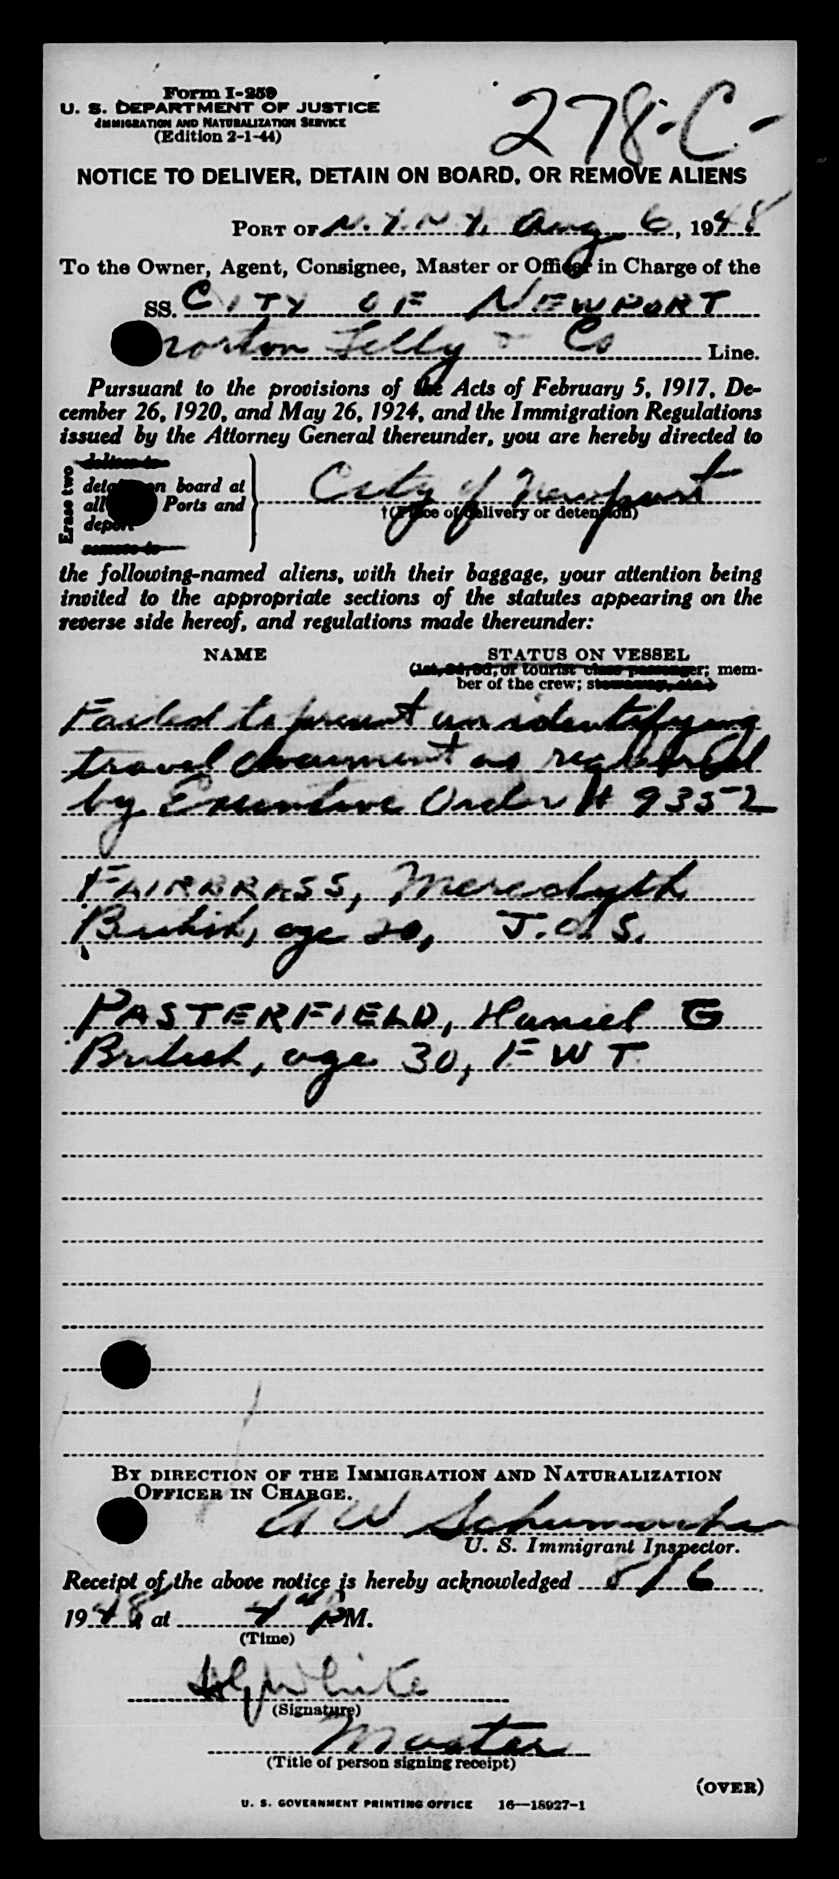 Form I-259
U. S. DEPARTMENT OF JUSTICE
IMMIGRATION AND NATURALIZATION SERVICE
(Edition 2-1-44)
278-C-
NOTICE TO DELIVER, DETAIN ON BOARD, OR REMOVE ALIENS
PORT OF N.Y. N.Y. Aug 6, 1948
To the Owner, Agent, Consignee, Master or Officer in Charge of the
SS. CITY OF NEWPORT
Norton Lilly & Co Line.
Pursuant to the provisions of the Acts of February 5, 1917, De-
cember 26, 1920, and May 26, 1924, and the Immigration Regulations
issued by the Attorney General thereunder, you are hereby directed to
Erase two
deliver to
detain on board at
all Ports and
deport
remove to
City of Newport
†(Place of delivery or detention)
the following-named aliens, with their baggage, your attention being
invited to the appropriate sections of the statutes appearing on the
reverse side hereof, and regulations made thereunder:
NAME STATUS ON VESSEL
(1st, 2d, 3d, or tourist class passenger; mem-
ber of the crew; stowaway, etc.)
Failed to present an identifying
travel document as required
by Executive Order # 9352
FAIRBRASS, Meredyth
British, age 20, J.O.S.
PASTERFIELD, Daniel G
British, age 30, FWT
BY DIRECTION OF THE IMMIGRATION AND NATURALIZATION
OFFICER IN CHARGE.
A W Schumacher
U. S. Immigrant Inspector.
Receipt of the above notice is hereby acknowledged 8/6
1948, at 4 PM.
(Time)
White
(Signature)
Master
(Title of person signing receipt)
(OVER)
U. S. GOVERNMENT PRINTING OFFICE 16—18927-1